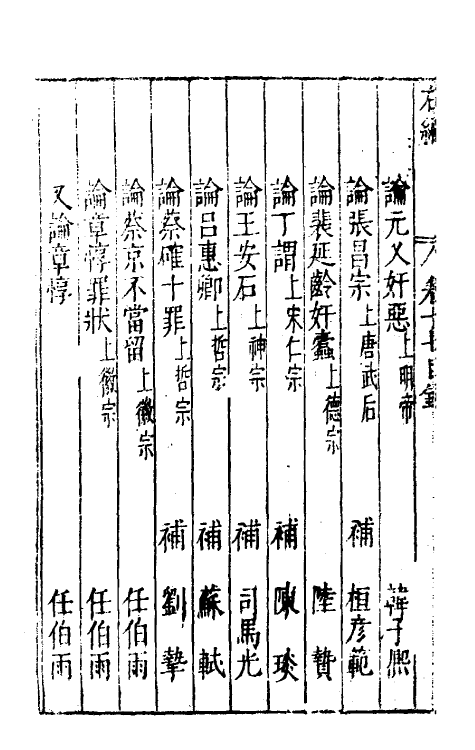 右編 卷十七目錄
論元乂奸惡上明帝 韓子熙
論張昌宗上唐武后 補 桓彦範
論裴延齡奸蠹上德宗 陸贄
論丁謂上宋仁宗 補 陳琰
論王安石上神宗 補 司馬光
論呂惠卿上哲宗 補 蘇軾
論蔡確十罪上哲宗 補 劉摯
論蔡京不當留上徽宗 任伯雨
論章惇罪狀上徽宗 任伯雨
又論章惇 任伯雨